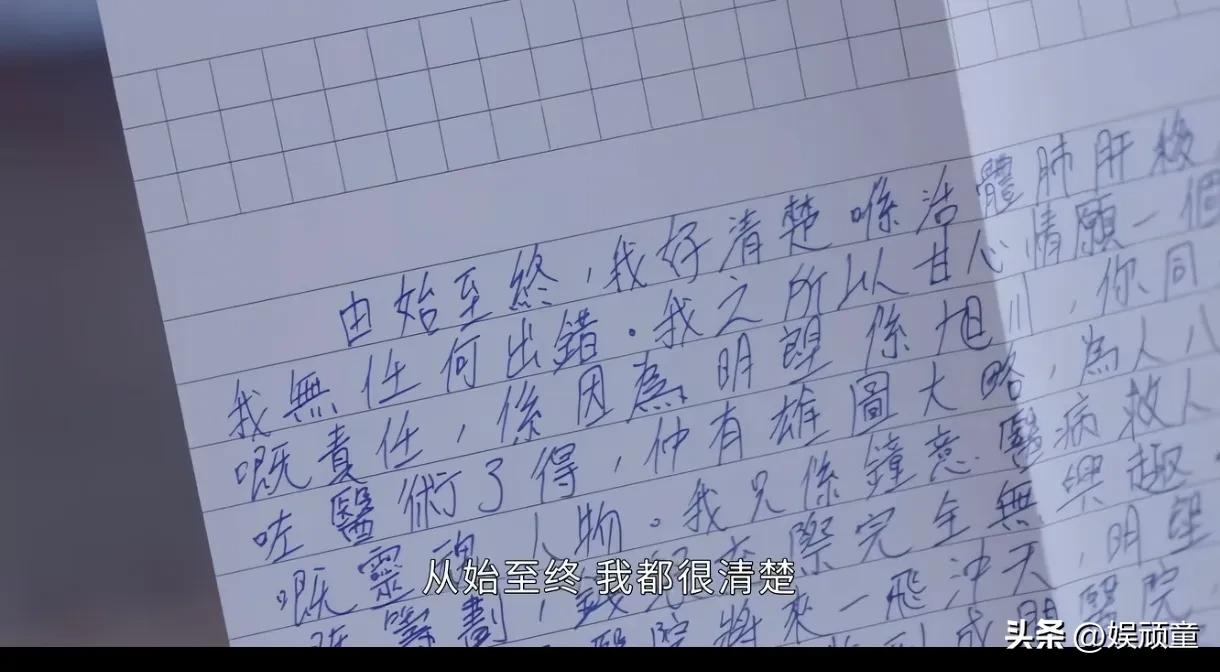 由始至終，我好清楚喺活體肺肝移
我無任何出錯。我之所以甘心情願一個
嘅責任，係因為明望係旭川，你同
咗醫術了得，仲有雄圖大略，為人八
嘅靈魂人物。我只係鐘意醫病救人
籌劃，際完全無興趣。
醫院將來一飛沖天，明望
成明醫院，
从始至终 我都很清楚
头条 @娱顽童